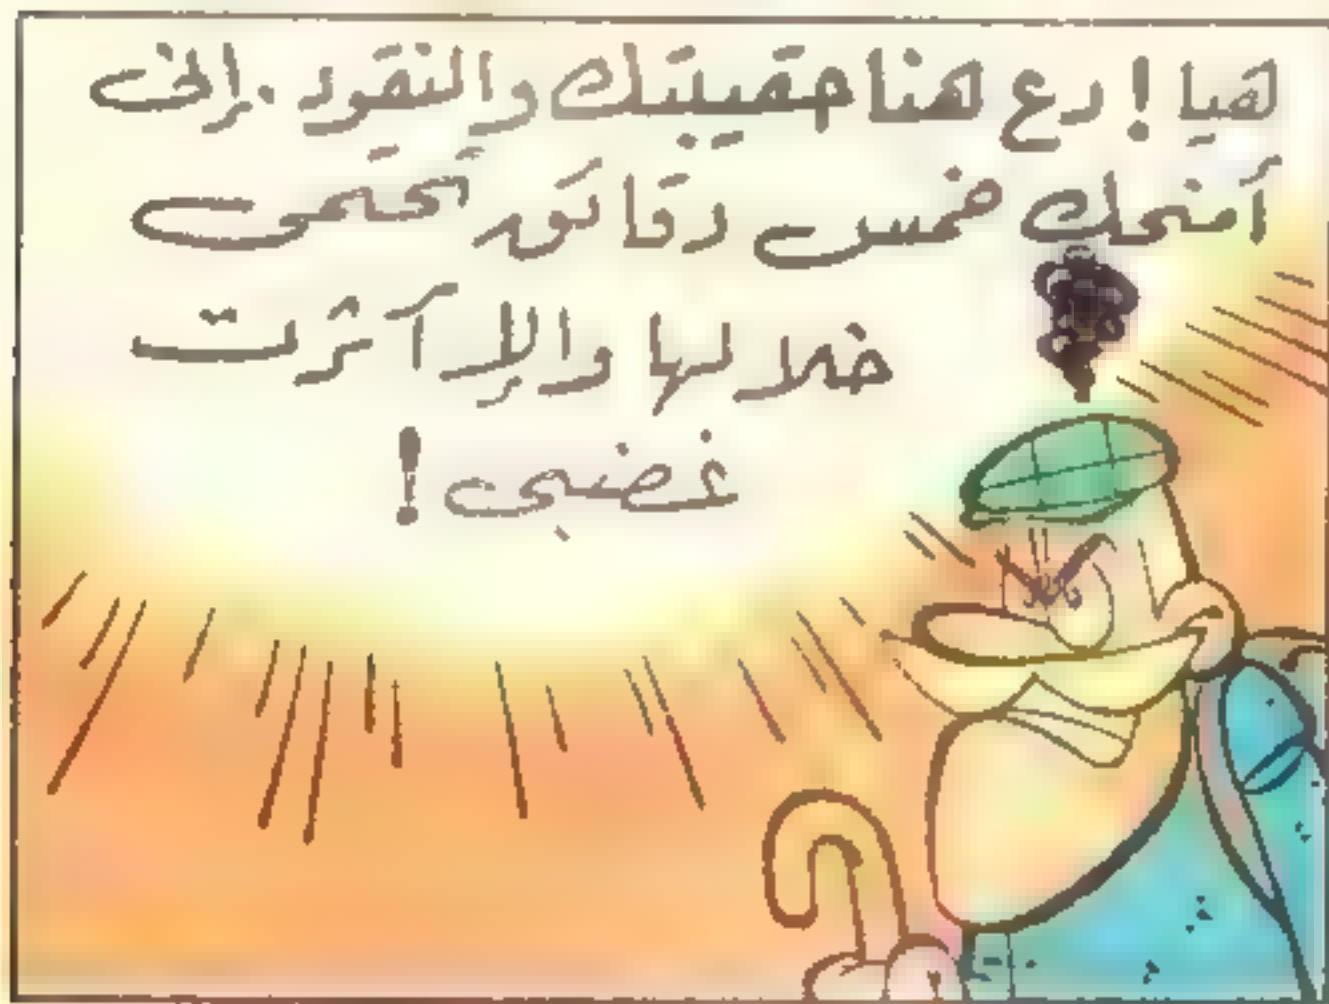 هيا ! دع هنا حقيبتك والنقود . إنى
أمنحك خمس دقائق تختفى
خلالها وإلا أثرت
غضبى !